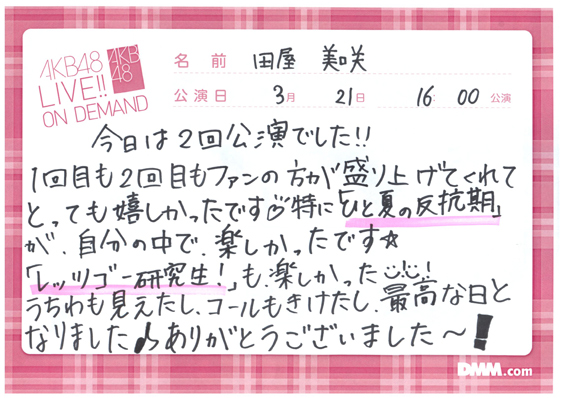 AKB48
LIVE!!
ON DEMAND
AKB
48
名前 田屋 美咲
公演日 3月 21日 16:00 公演
今日は2回公演でした!!
1回目も2回目もファンの方が盛り上げてくれて
とっても嬉しかったです♡特に「ひと夏の反抗期」
が、自分の中で、楽しかったです☆
「レッツゴー研究生!」も、楽しかった!
うちわも見えたし、コールもきけたし、最高な日と
なりました♪ありがとうございました〜!
DMM.com